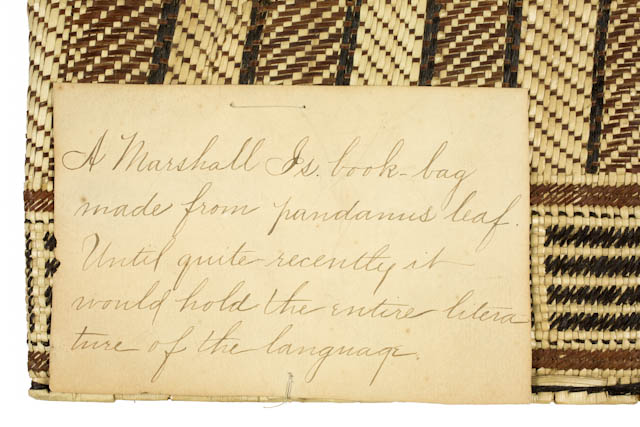 A Marshall Is. book-bag
made from pandanus leaf.
Until quite recently it
would hold the entire litera
ture of the language.